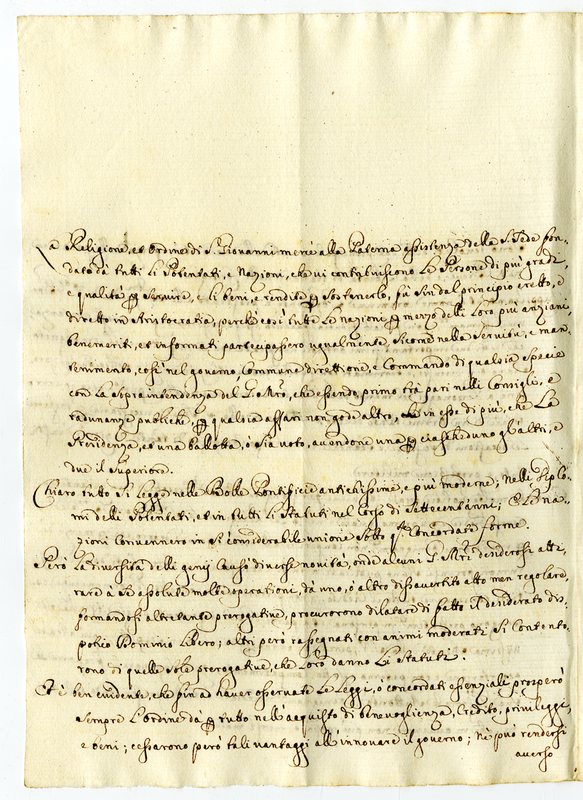 La Religione, et Ordine di S. Giovanni mercè alla Paterna assistenza della S. Sede fon-
dato da tutti li Potentati, e Nazioni, che vi contribuiscono le Persone di più gradi,
e qualità per servire, e li beni, e rendite per sostenerlo, fù sin dal principio eretto, e
diretto in Aristocratia, perche così tutte le nazioni per mezzo delli loro più anziani,
benemeriti, et informati partecipassero ugualmente, sicome nella Servitù, e man-
tenimento, così nel governo Commune direttione, e Commando di qualsia specie
con la sopra intendenza del G. Mro, che essendo primo trà pari nelli Consigli, e
radunanze publiche, per qualsia affari non gode altro, in esse di più, che La
Presidenza, et una ballotta, ò sia voto, avendone una per ciascheduno gl'altri, e
due il Superiore.
Chiaro tutto si legge nelle Bolle Pontificie antichissime, e più moderne; nelli Diplo-
mi delli Potentati, et in tutti li Statuti nel corso di Settecent'anni; e le Na-
zioni Convennero in sì considerabile unione sotto qte Concordate forme.
Però la diversità delli genij causò diverse novità, onde alcuni G. Mri desiderosi atti-
rare à se assolute molte operationi, dà uno, ò altro disavertito atto men regolare,
formandosi altretante prerogative, procurorono dilatare di fatto il desiderato dis-
potico Dominio libero; altri però rassegnati con animi moderati si contento-
rono di quelle sole prerogative, che loro danno li Statuti.
Et è ben evidente, che fin à haver osservate le leggi, ò concordati essenziali prosperò
sempre l'ordine dà per tutto nell'acquisto di benevoglienza, Credito, privileggi,
e beni; cessarono però tali vantaggi all'innovare il governo; Nè può rendersi
averso